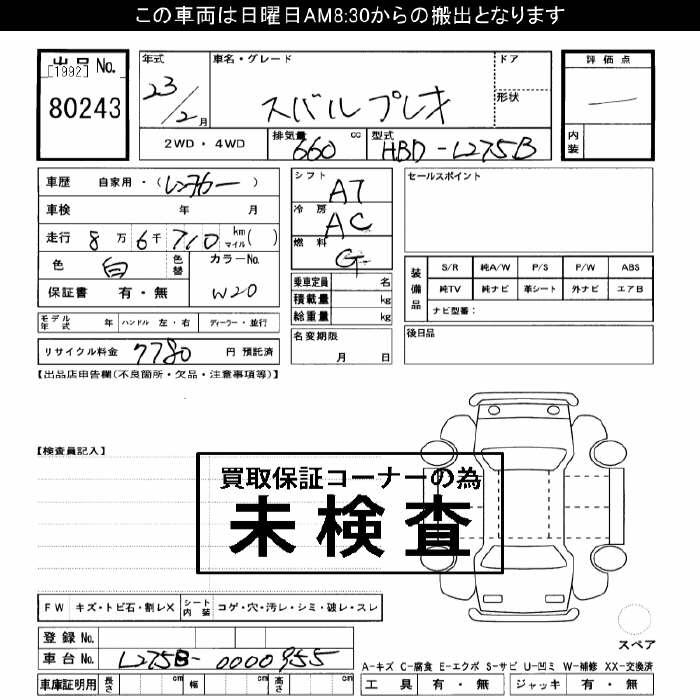 この車両は日曜日AM8:30からの搬出となります
出品 No.
[1992]
80243
年式 車名・グレード ドア 評価点
23/2月 スバル プレオ 形状 —
2WD・4WD 排気量 660 cc 型式 HBD-L275B 内装
車歴 自家用・(レンタカー)
車検 年 月
走行 8万6千710 km マイル( )
色 白 色替 カラーNo. W20
保証書 有・無
シフト AT
冷房 AC
燃料 G
乗車定員 名
積載量 kg
総重量 kg
セールスポイント
装備品 S/R 純A/W P/S P/W ABS
純TV 純ナビ 革シート 外ナビ エアB
ナビ型番:
モデル年式 年 ハンドル 左・右 ディーラー・並行
名変期限 月 日
後日品
リサイクル料金 7780 円 預託済
【出品店申告欄(不良箇所・欠品・注意事項等)】
【検査員記入】
買取保証コーナーの為
未検査
FW キズ・トビ石・割レX シート内装 コゲ・穴・汚レ・シミ・破レ・スレ
登録 No.
車台 No. L275B-0000955
スペア
A-キズ C-腐食 E-エクボ S-サビ U-凹ミ W-補修 XX-交換済
車庫証明用 長さ cm 幅 cm 高さ cm 工具 有・無 ジャッキ 有・無